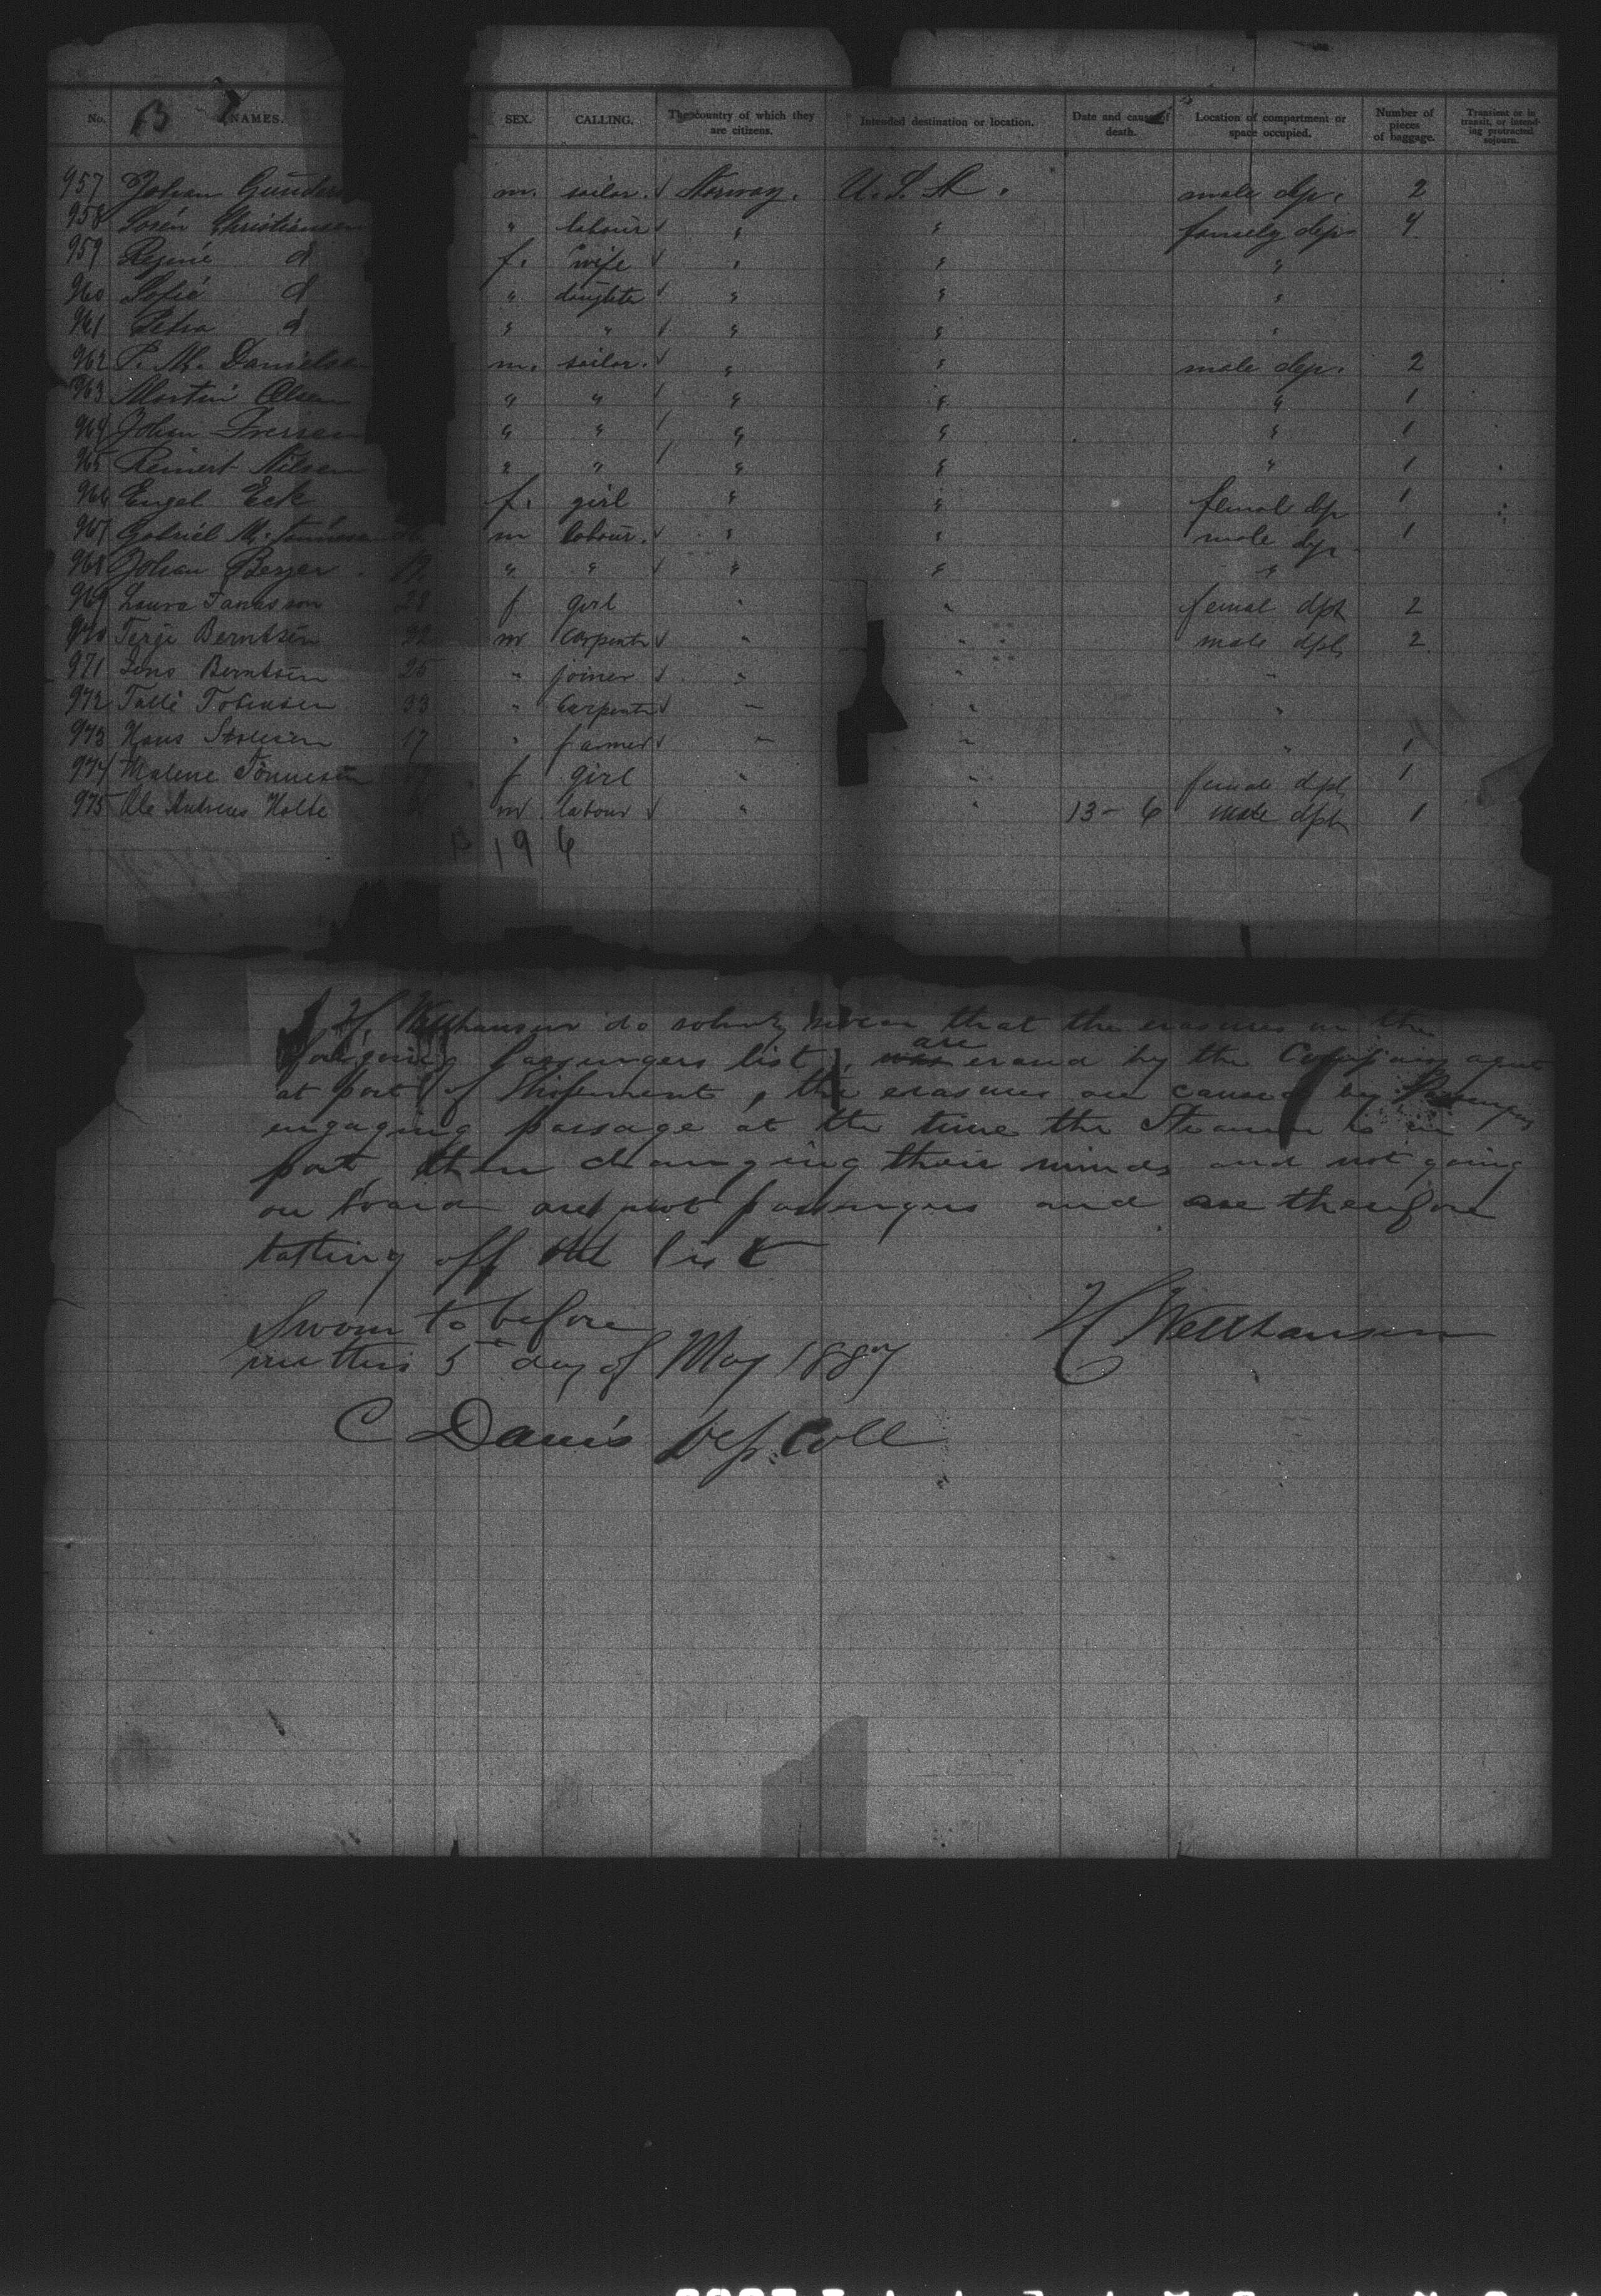 No. NAMES. SEX. CALLING. The country of which they are citizens. Intended destination or location. Date and cause of death. Location of compartment or space occupied. Number of pieces of baggage. Transient or in transit, or intending protracted sojourn.
B
957 Johan Gunders m. sailor. Norway. U.S.A. male dep. 2
958 Sorén Christiansen " labour " " famely dep 4
959 Regine d f. wife " " "
960 Sofie d " daughter " " "
961 Petra d " " " " "
962 P. M. Danielsen m. sailor. " " male dep. 2
963 Martin Olsen " " " " " 1
964 Johan Iversen " " " " " 1
965 Reinert Nilsen " " " " " 1
966 Engel Eek f. girl " " femal dp 1
967 Gabriel M. Tönnesen m labour. " " male dep 1
968 Johan Berger 19 " " " " "
969 Laura 28 f girl " " femal dpt 2
970 Terje Berntsen 32 m carpenter " " male dpt 2
971 Jens Berntsen 25 " joiner " " "
972 Tallé 33 " carpenter " " "
973 Hans 17 " farmer " " " 1
974 Malene Tönnesen f girl " " female dpt 1
975 Ole Andreas Holte m labour " " 13 - 6 male dpt 1
B 196
I, H. Wellhausen do solmly swear that the erasures in the
foregoing Passengers list, was are erased by the Company agent
at port of Shipment, the erasures are caused by Passengers
engaging passage at the time the Steamer is in
port then changing their minds and not going
on board are not passengers and are therefore
off the list
Sworn to before H Wellhausen
me this 5th day of May 1887
C Davis Dep. Coll